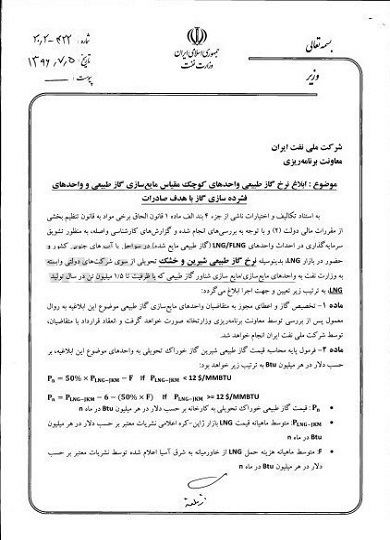 بسمه تعالی
جمهوری اسلامی ایران
وزارت نفت
وزیر
شماره: ۲۰/۲-۴۲۲
تاریخ: ۱۳۹۶/۷/۵
پیوست:
شرکت ملی نفت ایران
معاونت برنامه‌ریزی
موضوع: ابلاغ نرخ گاز طبیعی واحدهای کوچک مقیاس مایع‌سازی گاز طبیعی و واحدهای
فشرده سازی گاز با هدف صادرات
به استناد تکالیف و اختیارات ناشی از جزء ۴ بند الف ماده ۱ قانون الحاق برخی مواد به قانون تنظیم بخشی
از مقررات مالی دولت (۲) و با توجه به بررسی‌های انجام شده و گزارش‌های کارشناسی واصله، به منظور تشویق
سرمایه‌گذاری در احداث واحدهای LNG/FLNG (گاز طبیعی مایع شده) در سواحل یا آب های جنوبی کشور و
حضور در بازار LNG، بدینوسیله نرخ گاز طبیعی شیرین و خشک تحویلی از سوی شرکت‌های دولتی وابسته
به وزارت نفت به واحدهای مایع‌سازی/مایع سازی شناور گاز طبیعی که با ظرفیت تا ۱/۵ میلیون تن در سال تولید
LNG، به ترتیب زیر تعیین و جهت اجرا ابلاغ می‌گردد:
ماده ۱- تخصیص گاز و اعطای مجوز به متقاضیان واحدهای مایع‌سازی گاز طبیعی موضوع این ابلاغیه به روال
معمول پس از بررسی توسط معاونت برنامه‌ریزی وزارتخانه صورت خواهد گرفت و انعقاد قرارداد با متقاضیان،
توسط شرکت ملی نفت ایران انجام خواهد شد.
ماده ۲- فرمول پایه محاسبه قیمت گاز طبیعی شیرین گاز خوراک تحویلی به واحدهای موضوع این ابلاغیه، بر
حسب دلار در هر میلیون Btu به ترتیب زیر خواهد بود:
Pn = 50% × PLNG-JKM – F If PLNG-JKM < 12 $/MMBTU
Pn = PLNG-JKM – 6 – (50% × F) If PLNG-JKM >= 12 $/MMBTU
• Pn: قیمت گاز طبیعی خوراک تحویلی به کارخانه بر حسب دلار در هر میلیون Btu در ماه n
• PLNG-JKM: متوسط ماهیانه قیمت LNG بازار ژاپن-کره اعلامی نشریات معتبر بر حسب دلار در هر میلیون
Btu در ماه n
• F: متوسط ماهیانه هزینه حمل LNG از خاورمیانه به شرق آسیا اعلام شده توسط نشریات معتبر بر حسب
دلار در هر میلیون Btu در ماه n